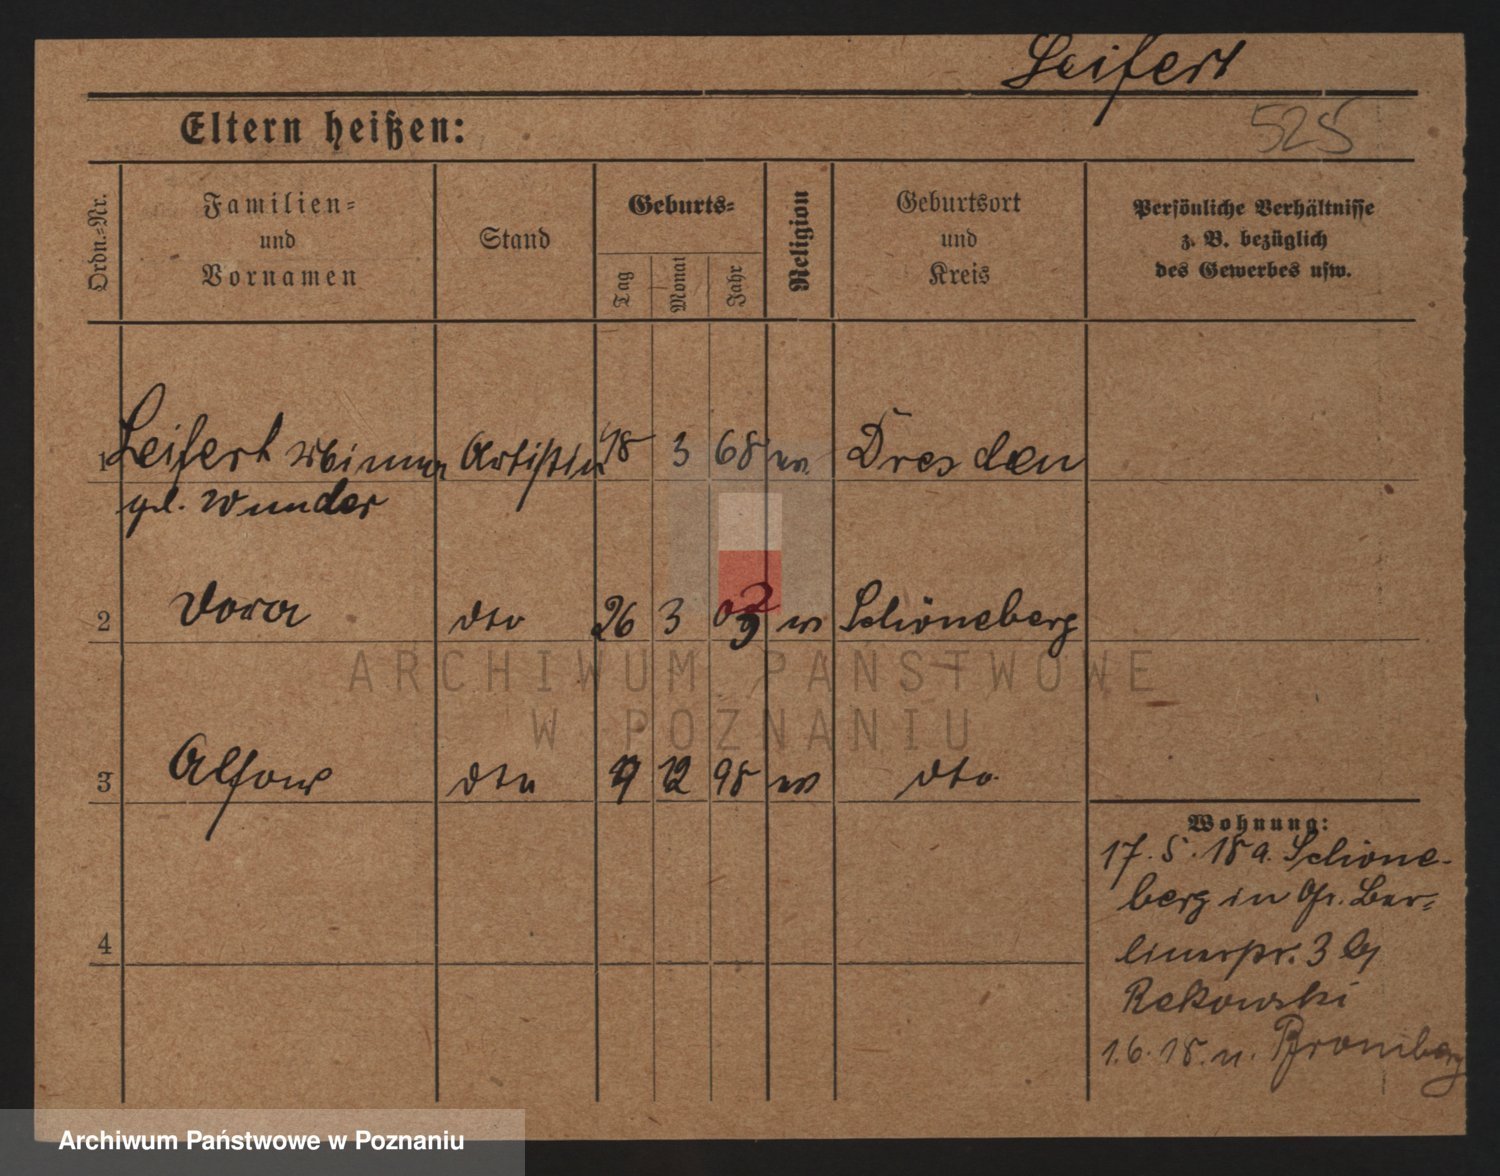 Seifert
525
Eltern heißen:
Ordn.-Nr.
Familien-
und
Vornamen
Stand
Geburts-
Tag
Monat
Jahr
Religion
Geburtsort
und
Kreis
Persönliche Verhältnisse
z. B. bezüglich
des Gewerbes usw.
1 Seifert Artistin 18 3 68 Dresden
Wunder
2 Dora dto 26 3 Schöneberg
3 dto 12 98 dto
4
Wohnung:
17. 5. 18 a. Schöne-
berg in Gr. Ber-
linerstr. 3
Rekowski
1. 6. 18. n. Bromberg
ARCHIWUM PAŃSTWOWE
W POZNANIU
Archiwum Państwowe w Poznaniu